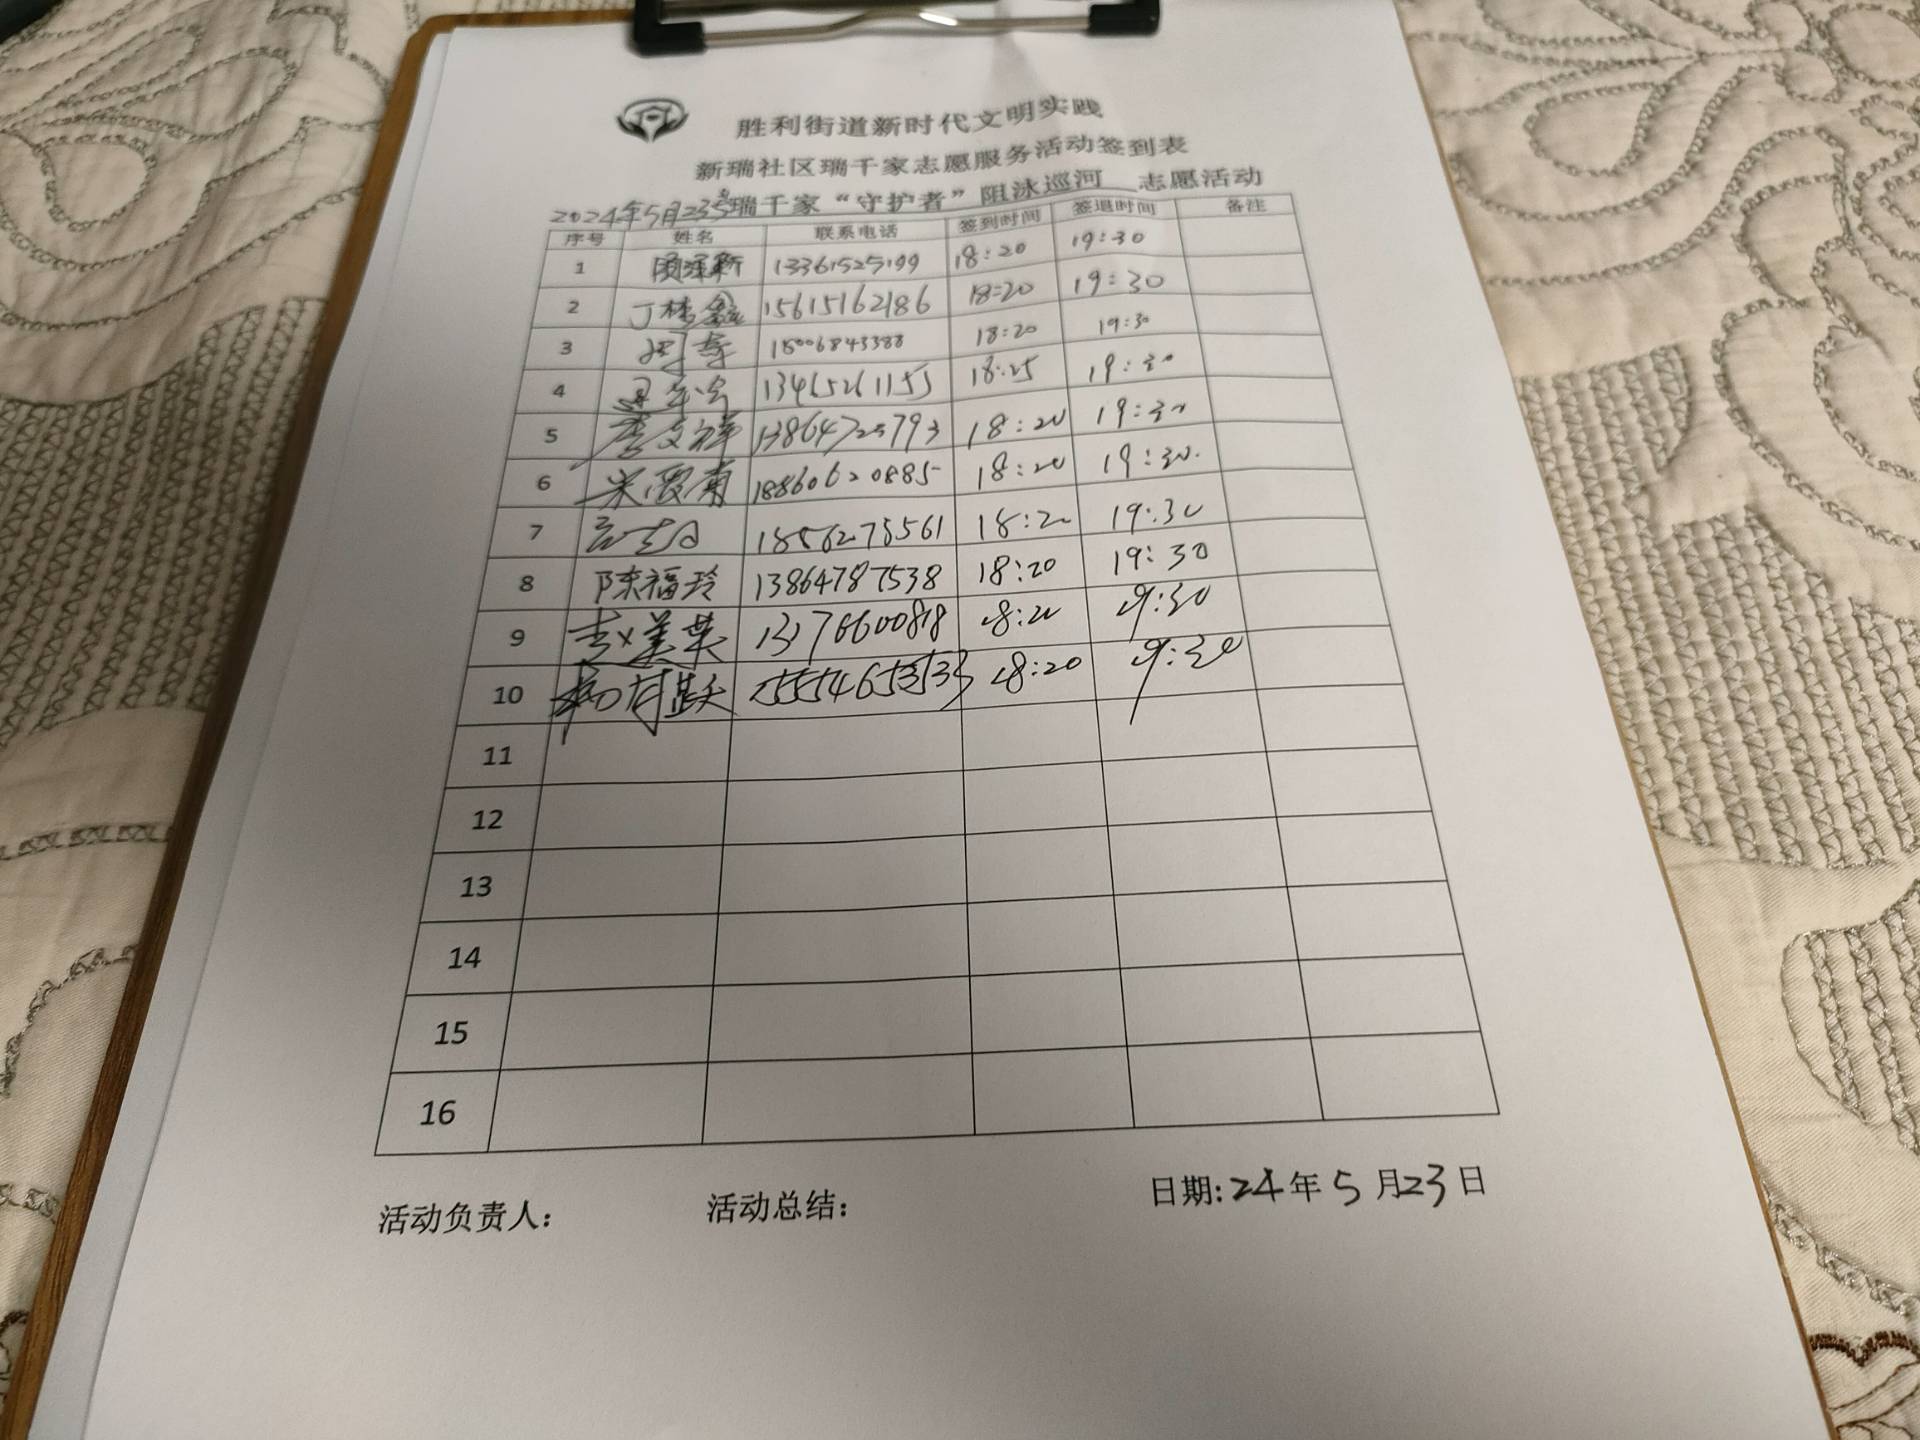 胜利街道新时代文明实践
新瑞社区瑞千家志愿服务活动签到表
2024年5月23号瑞千家“守护者”阻泳巡河 志愿活动
序号 姓名 联系电话 签到时间 签退时间 备注
1 13361525199 18:20 19:30
2 15615162186 18:20 19:30
3 18:20 19:30
4 13465261155 18:25 19:30
5 李文祥 13864725793 18:20 19:30
6 18860620885 18:20 19:30
7 18562785561 18:20 19:30
8 陈福玲 13864787538 18:20 19:30
9 18:20 19:30
10 18:20 19:30
11
12
13
14
15
16
活动负责人： 活动总结： 日期:24年5月23日